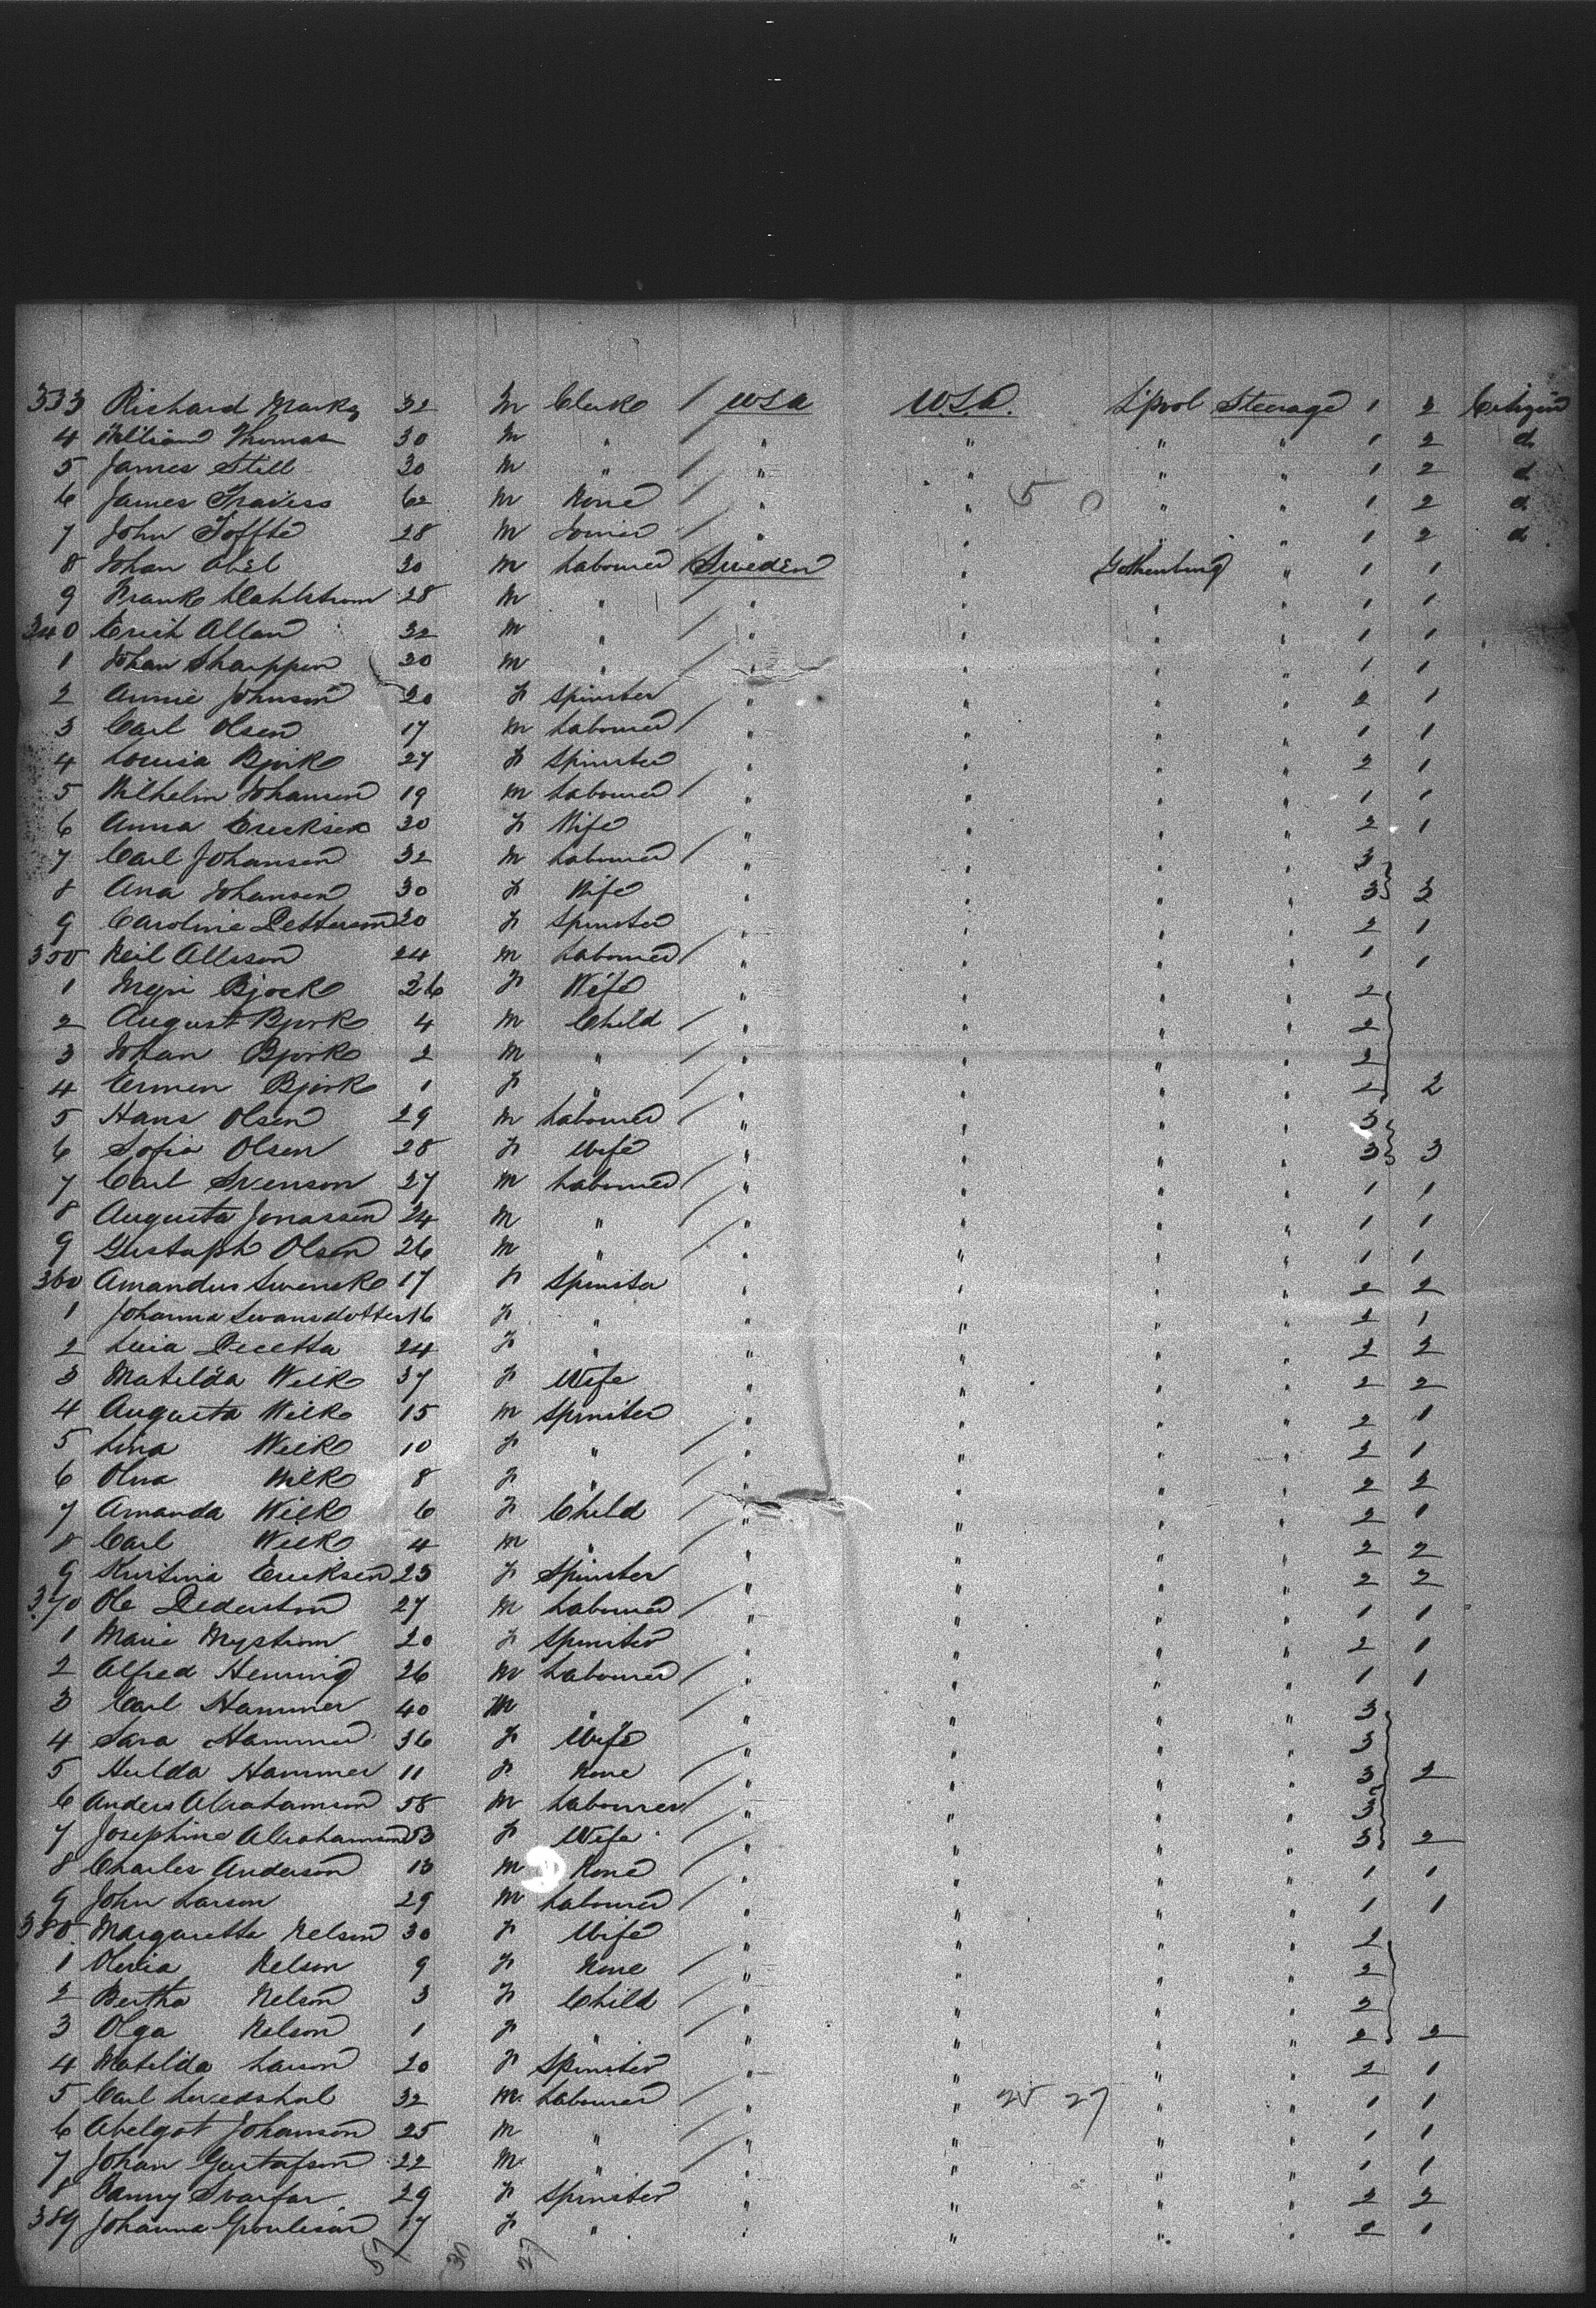 333 Richard Marks 32 M Clerk / USA U.S.A. L'pool Steerage 1 2 Citizen
4 William Thomas 30 M " / " " " " 1 2 d
5 James Still 30 M " / " " " " 1 2 d
6 James Travess 62 M None / " " 5 0 " " 1 2 d
7 John Toffte 28 M / " " " " 1 2 d
8 Johan Abel 30 M Labourer Sweden " Gothenburg " 1 1
9 Frank Dahlstrom 28 M " / " " " " 1 1
340 Erich Allan 32 M " / " " " " 1 1
1 Johan Sharppen 20 M " / " " " " 1 1
2 Annie Johnson 20 F Spinster " " " " 2 1
3 Carl Olsen 17 M Labourer / " " " " 1 1
4 Louisa Bjork 27 F Spinster " " " " 2 1
5 Wilhelm Johansen 19 M Labourer / " " " " 1 1
6 Anna Ericksen 30 F Wife " " " " 2 1
7 Carl Johansen 32 M Labourer / " " " " 3
8 Ana Johansen 30 F Wife " " " " 3 3
9 Caroline Petterson 20 F Spinster " " " " 2 1
350 Neil Allsson 24 M Labourer / " " " " 1 1
1 Bjork 26 F Wife " " " " 2
2 August Bjork 4 M Child / " " " " 2
3 Johan Bjork 2 M " / " " " " 2
4 Ermen Bjork 1 F " / " " " " 2 2
5 Hans Olsen 29 M Labourer / " " " " 3
6 Sofia Olsen 28 F Wife " " " " 3 3
7 Carl Svenson 27 M Labourer / " " " " 1 1
8 Augusta Jonassen 24 M " / " " " " 1 1
9 Gustaph Olsen 26 M " / " " " " 1 1
360 Amandus Swensk 17 F Spinster " " " " 2 2
1 Johanna Swansdotter 16 F " " " " " 2 1
2 Luia Decetta 24 F " " " " " 2 2
3 Matilda Weik 37 F Wife " " " " 2 2
4 Augusta Weik 15 M Spinster " " " " 2 1
5 Lina Weik 10 F " / " " " " 2 1
6 Olna Weik 8 F " / " " " " 2 2
7 Amanda Weik 6 F Child / " " " " 2 1
8 Carl Weik 4 M " / " " " " 2 2
9 Kristina Ericksen 25 F Spinster " " " " 2 2
370 Ole Pederston 27 M Labourer / " " " " 1 1
1 Marie Mystrom 20 F Spinster " " " " 2 1
2 Alfred Henning 26 M Labourer / " " " " 1 1
3 Carl Hammer 40 M " / " " " " 3
4 Sara Hammer 36 F Wife " " " " 3
5 Hulda Hammer 11 F None / " " " " 3 2
6 Anders Abrahamson 58 M Labourer / " " " " 3
7 Josephine Abrahamson 53 F Wife " " " " 3 2
8 Charles Anderson 13 M None / " " " " 1 1
9 John Larson 29 M Labourer / " " " " 1 1
380 Margaretta Nelson 30 F Wife " " " " 2
1 Olivia Nelson 9 F None / " " " " 2
2 Bertha Nelson 3 F Child / " " " " 2
3 Olga Nelson 1 F " / " " " " 2 2
4 Matilda Larson 20 F Spinster " " " " 2 1
5 Carl 32 M Labourer / " " 25 27 " " 1 1
6 Abelgot Johanson 25 M " / " " " " 1 1
7 Johan Gustafson 22 M " / " " " " 1 1
8 Fanny Svarfar 29 F Spinster " " " " 2 2
389 Johanna 17 F " " " " " 2 1
57 30 27